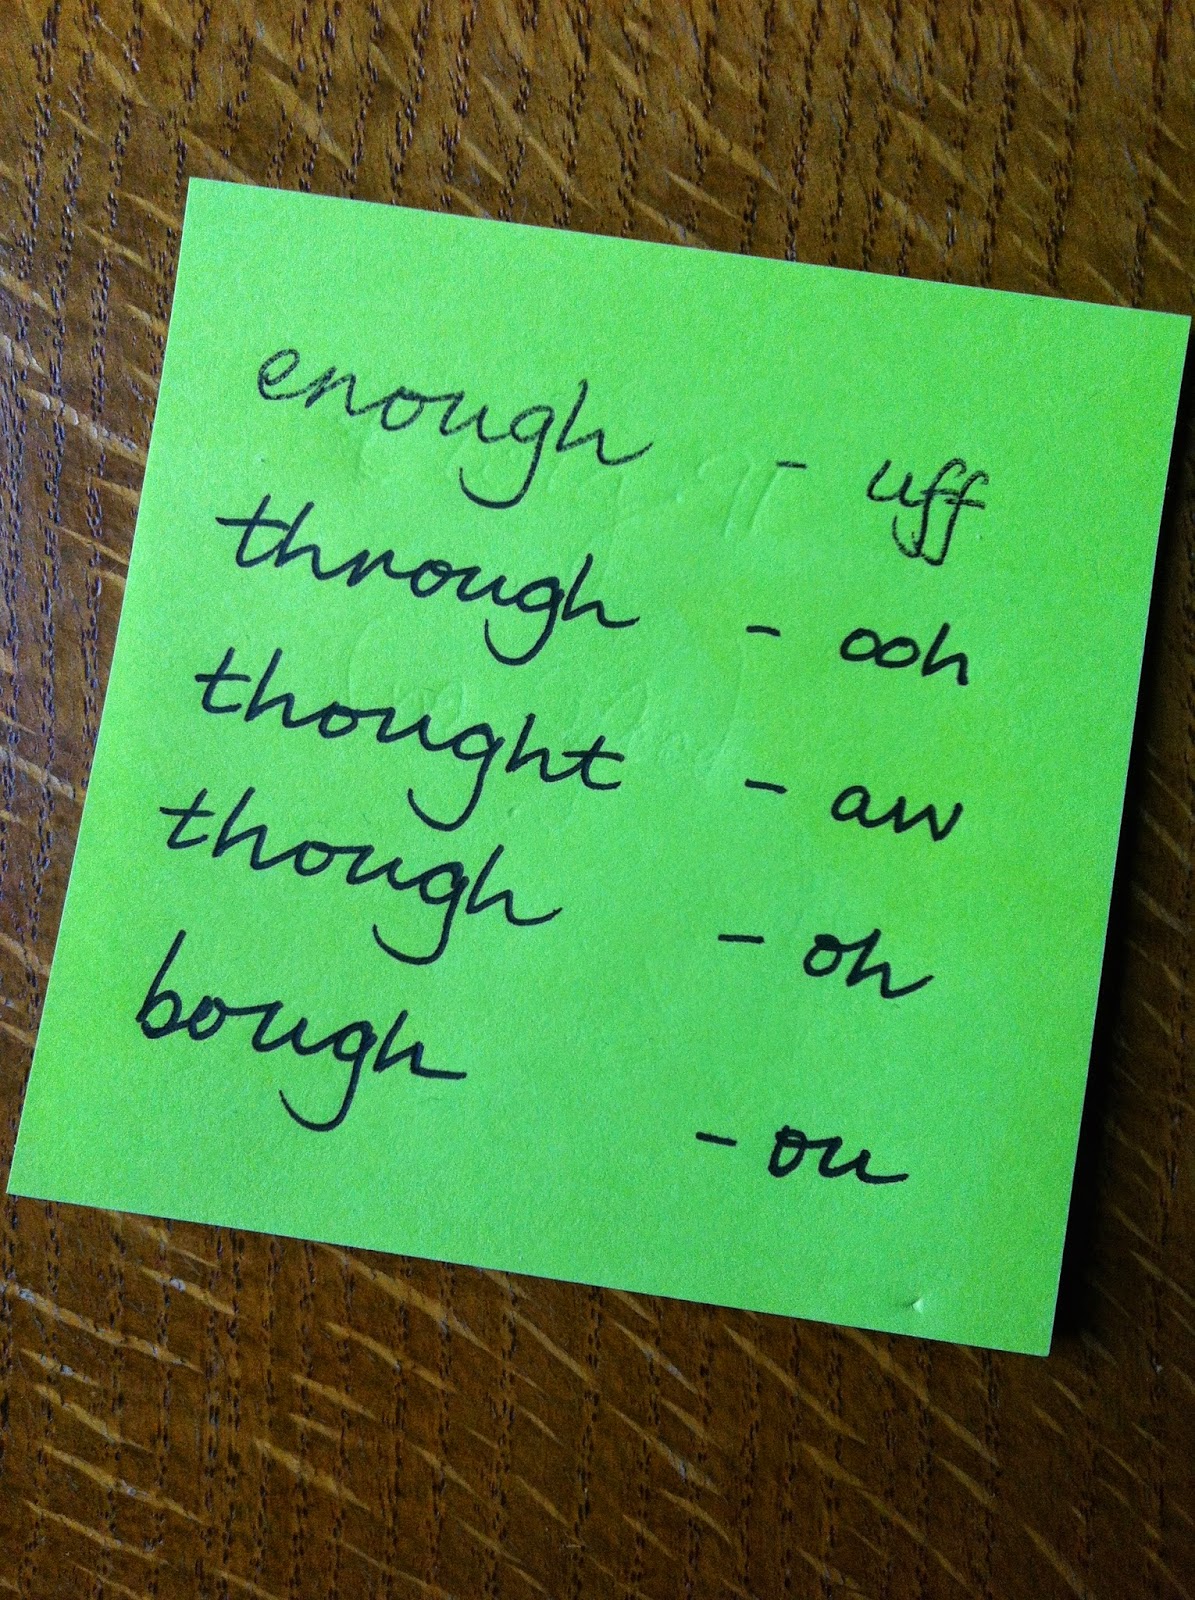 enough - uff
through - ooh
thought - aw
though - oh
bough - ou